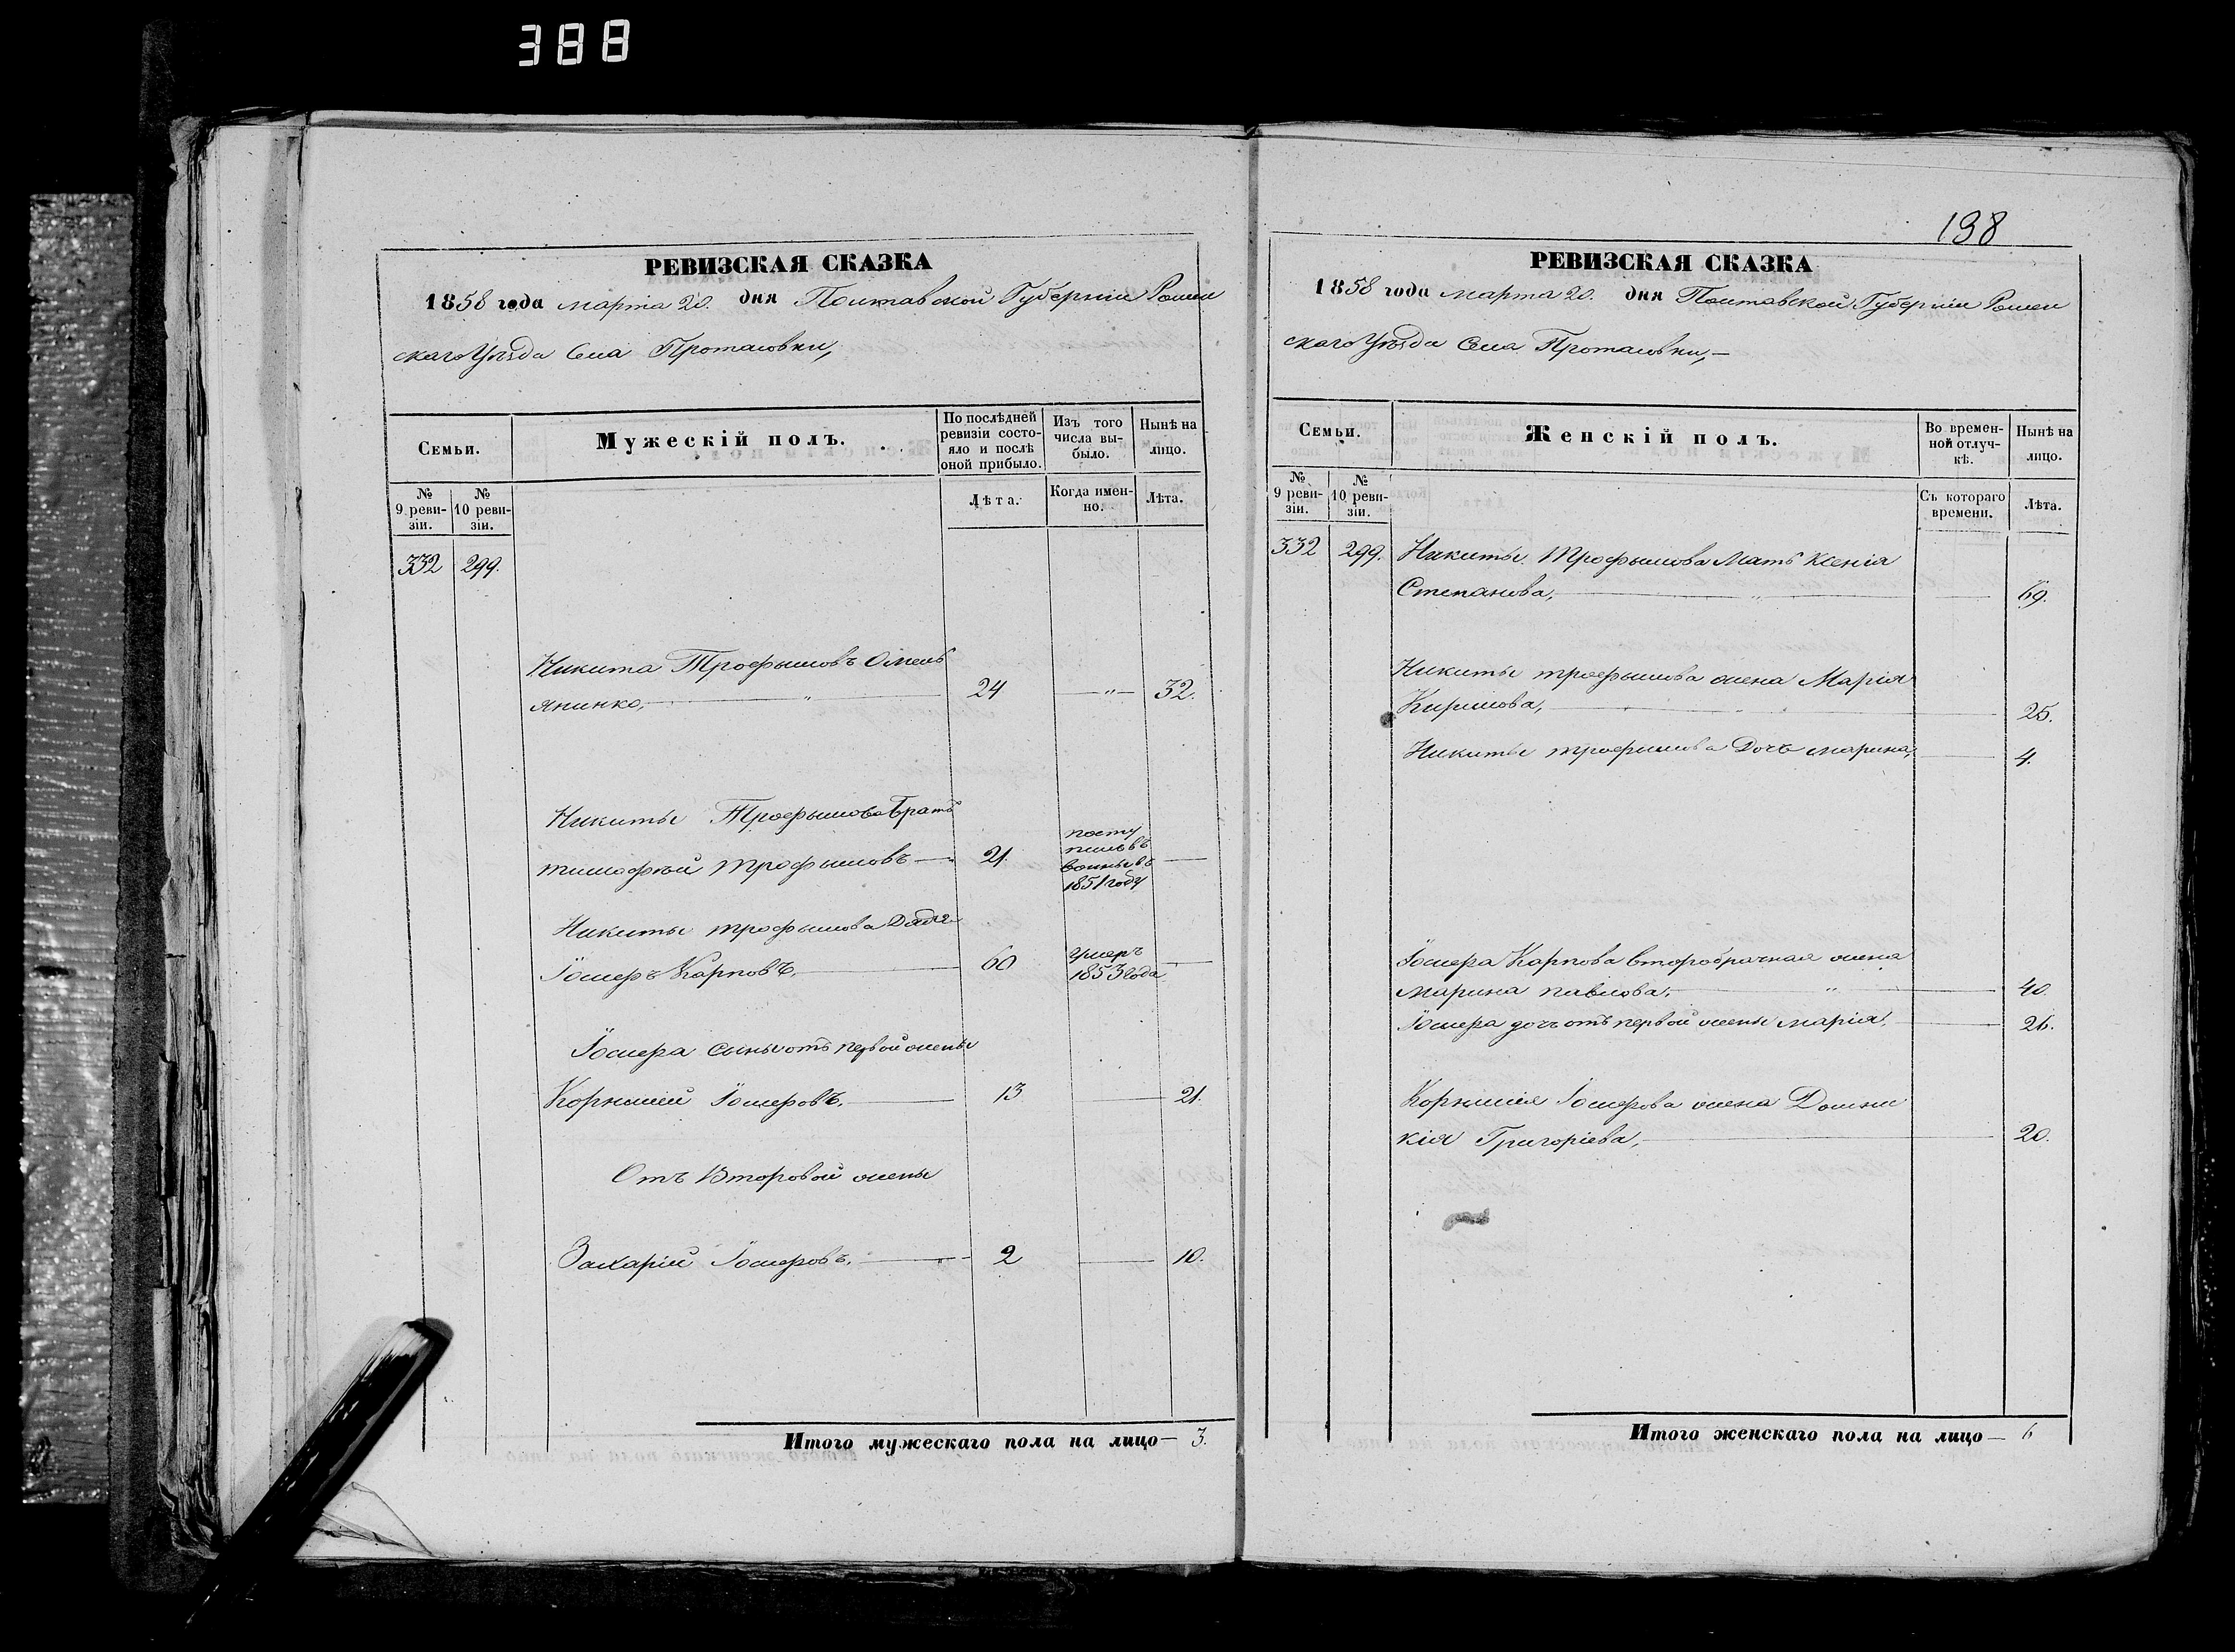 388
РЕВИЗСКАЯ СКАЗКА
1858 года марта 20. дня Полтавской Губерніи Ромен
скаго Уѣзда Села Протасовки,
Семьи.
Мужескій полъ.
По послѣдней ревизіи состо-
яло и послѣ оной прибыло.
Изъ того числа вы-
было.
Нынѣ на лицо.
№ 9 реви-
зіи.
№ 10 реви-
зіи.
Лѣта.
Когда имен-
но.
Лѣта.
332 299.
Никита Трофымовъ Омель
янинко, 24 — " — 32.
Никиты Трофымова Братъ
тимофѣй трофымовъ — 21. посту
пилъ въ
воины въ
1851 году —
Никиты трофымова Дядя
Іосифъ Карповъ. 60 умеръ
1853 года —
Іосифа сыны отъ первой жены
Корнилій Іосифовъ. 13 — 21.
Отъ Второвой жены
Захарій Іосифовъ. 2 — 10.
Итого мужескаго пола на лицо — 3.
198
РЕВИЗСКАЯ СКАЗКА
1858 года марта 20. дня Полтавской Губерніи Ромен
скаго Уѣзда Села Протасовки, —
Семьи.
Женскій полъ.
Во времен-
ной отлуч-
кѣ.
Нынѣ на лицо.
№ 9 реви-
зіи.
№ 10 реви-
зіи.
Съ котораго времени.
Лѣта.
332 299. Никиты Трофымова Мать Ксенія
Степанова, — " — 69.
Никиты трофымова жена Марія
Кирилова, — 25.
Никиты трофимова Дочь марина, — 4.
Іосифа Карпова второбрачная жена
Марина павлова, — " — 40.
Іосифа дочь отъ первой жены марія. — 26.
Корнилія Іосифова жена Домни
кія Григоріева, — 20.
Итого женскаго пола на лицо — 6